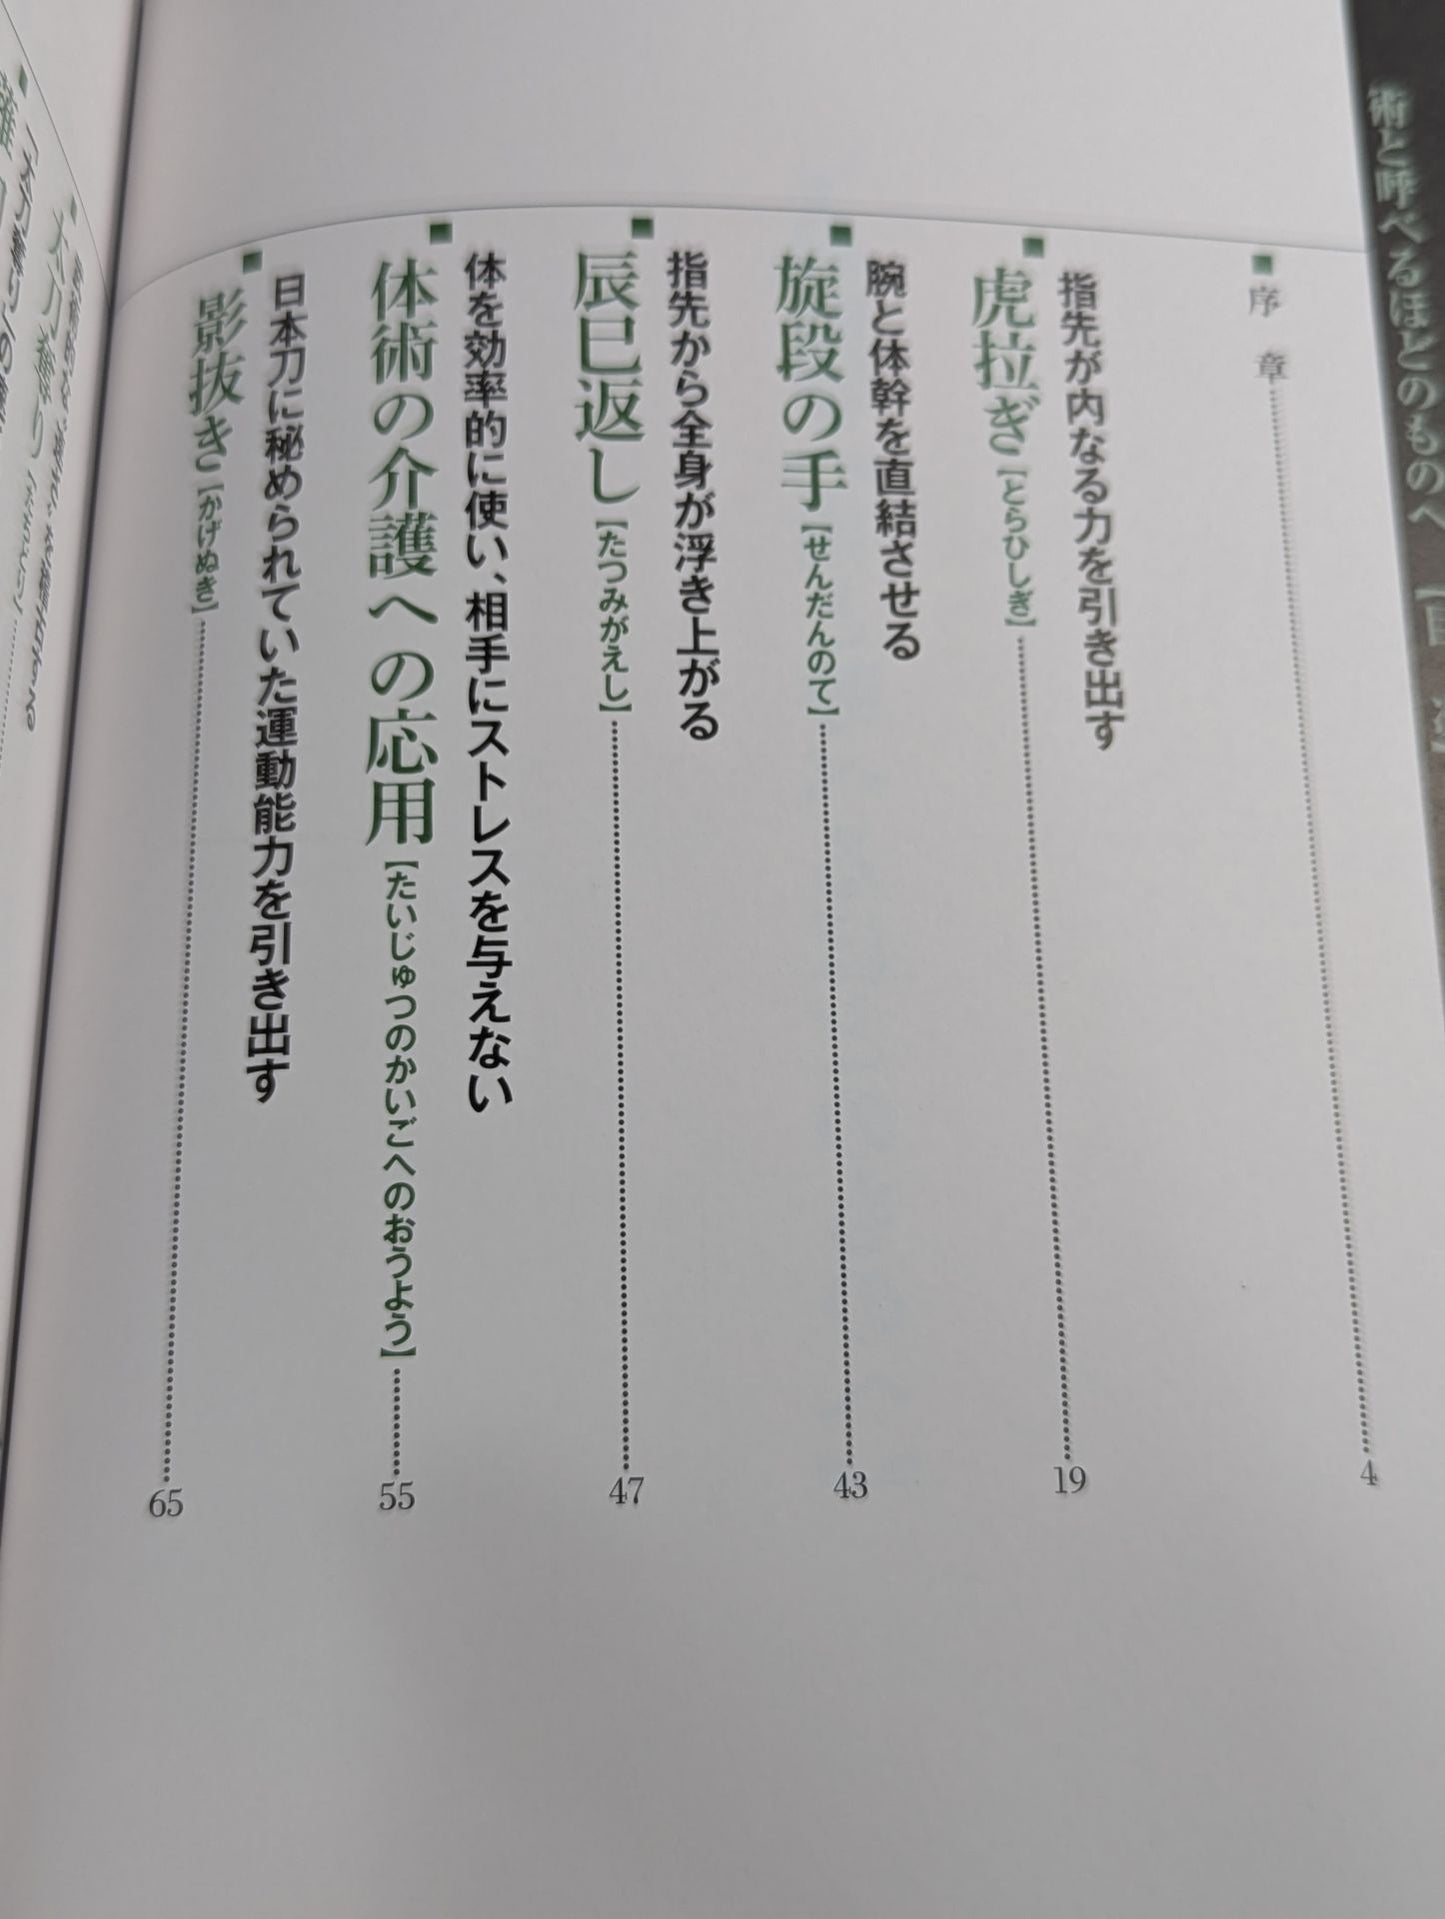 術と呼べるほどのものへ
序　章 4
指先が内なる力を引き出す
虎拉ぎ【とらひしぎ】 19
腕と体幹を直結させる
旋段の手【せんだんのて】 43
指先から全身が浮き上がる
辰巳返し【たつみがえし】 47
体を効率的に使い、相手にストレスを与えない
体術の介護への応用【たいじゅつのかいごへのおうよう】 55
日本刀に秘められていた運動能力を引き出す
影抜き【かげぬき】 65